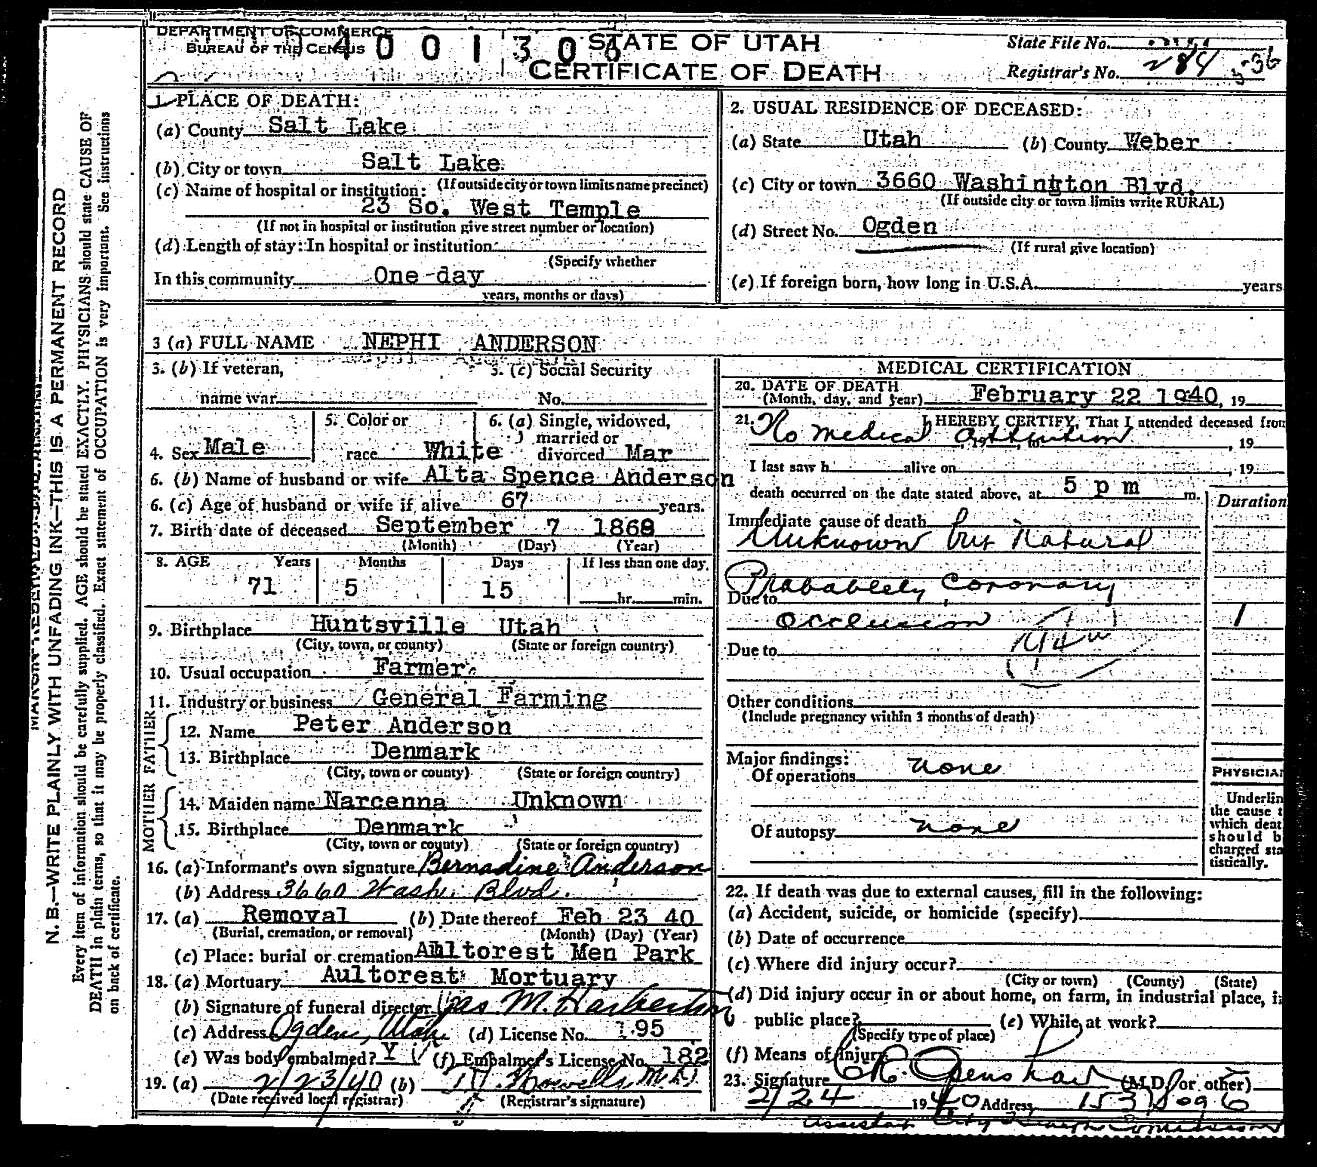 DEPARTMENT OF COMMERCE
BUREAU OF THE CENSUS
STATE OF UTAH
CERTIFICATE OF DEATH
State File No.
Registrar's No. 284
1. PLACE OF DEATH:
(a) County Salt Lake
(b) City or town Salt Lake
(If outside city or town limits name precinct)
(c) Name of hospital or institution:
23 So. West Temple
(If not in hospital or institution give street number or location)
(d) Length of stay: In hospital or institution
(Specify whether
In this community One day
years, months or days)
2. USUAL RESIDENCE OF DECEASED:
(a) State Utah (b) County Weber
(c) City or town 3660 Washington Blvd.
(If outside city or town limits write RURAL)
(d) Street No. Ogden
(If rural give location)
(e) If foreign born, how long in U.S.A. years
3 (a) FULL NAME NEPHI ANDERSON
3. (b) If veteran, 3. (c) Social Security
name war No.
4. Sex Male 5. Color or race White 6. (a) Single, widowed, married or divorced Mar
6. (b) Name of husband or wife Alta Spence Anderson
6. (c) Age of husband or wife if alive 67 years.
7. Birth date of deceased September 7 1868
(Month) (Day) (Year)
8. AGE Years Months Days If less than one day.
71 5 15 hr. min.
9. Birthplace Huntsville Utah
(City, town, or county) (State or foreign country)
10. Usual occupation Farmer
11. Industry or business General Farming
FATHER
12. Name Peter Anderson
13. Birthplace Denmark
(City, town or county) (State or foreign country)
MOTHER
14. Maiden name Narcenna Unknown
15. Birthplace Denmark
(City, town or county) (State or foreign country)
16. (a) Informant's own signature Bernadine Anderson
(b) Address 3660 Wash. Blvd.
17. (a) Removal (b) Date thereof Feb 23 40
(Burial, cremation, or removal) (Month) (Day) (Year)
(c) Place: burial or cremation Aultorest Men Park
18. (a) Mortuary Aultorest Mortuary
(b) Signature of funeral director Jas M. Harbertson
(c) Address Ogden, Utah (d) License No. 195
(e) Was body embalmed? Y (f) Embalmer's License No. 182
19. (a) 2/23/40 (b) M.D.
(Date received local registrar) (Registrar's signature)
MEDICAL CERTIFICATION
20. DATE OF DEATH
(Month, day, and year) February 22 1940, 19
21. I HEREBY CERTIFY, That I attended deceased from
No medical , 19
I last saw h alive on , 19
death occurred on the date stated above, at 5 p m m.
Duration
Immediate cause of death
Unknown but Natural
Probablely Coronary
Due to
Occlusion 1
Due to
Other conditions
(Include pregnancy within 3 months of death)
Major findings:
Of operations none
Of autopsy none
PHYSICIAN
Underlin
the cause t
which deat
should b
charged sta
tistically.
22. If death was due to external causes, fill in the following:
(a) Accident, suicide, or homicide (specify)
(b) Date of occurrence
(c) Where did injury occur?
(City or town) (County) (State)
(d) Did injury occur in or about home, on farm, in industrial place, i
public place? (e) While at work?
(Specify type of place)
(f) Means of injury
23. Signature (M.D. or other)
2/24 1940 Address
N. B.—WRITE PLAINLY WITH UNFADING INK—THIS IS A PERMANENT RECORD
Every item of information should be carefully supplied. AGE should be stated EXACTLY. PHYSICIANS should state CAUSE OF
DEATH in plain terms, so that it may be properly classified. Exact statement of OCCUPATION is very important. See instructions
on back of certificate.